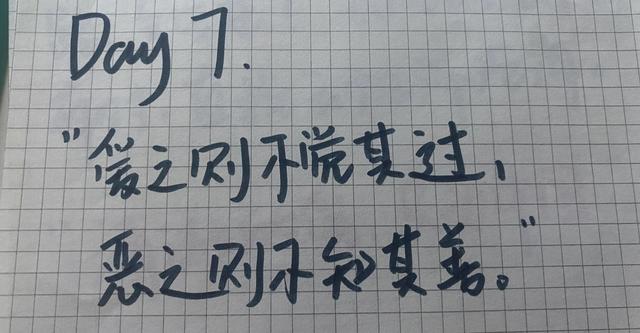 Day 7.
"爱之则不觉其过，
恶之则不知其善。"